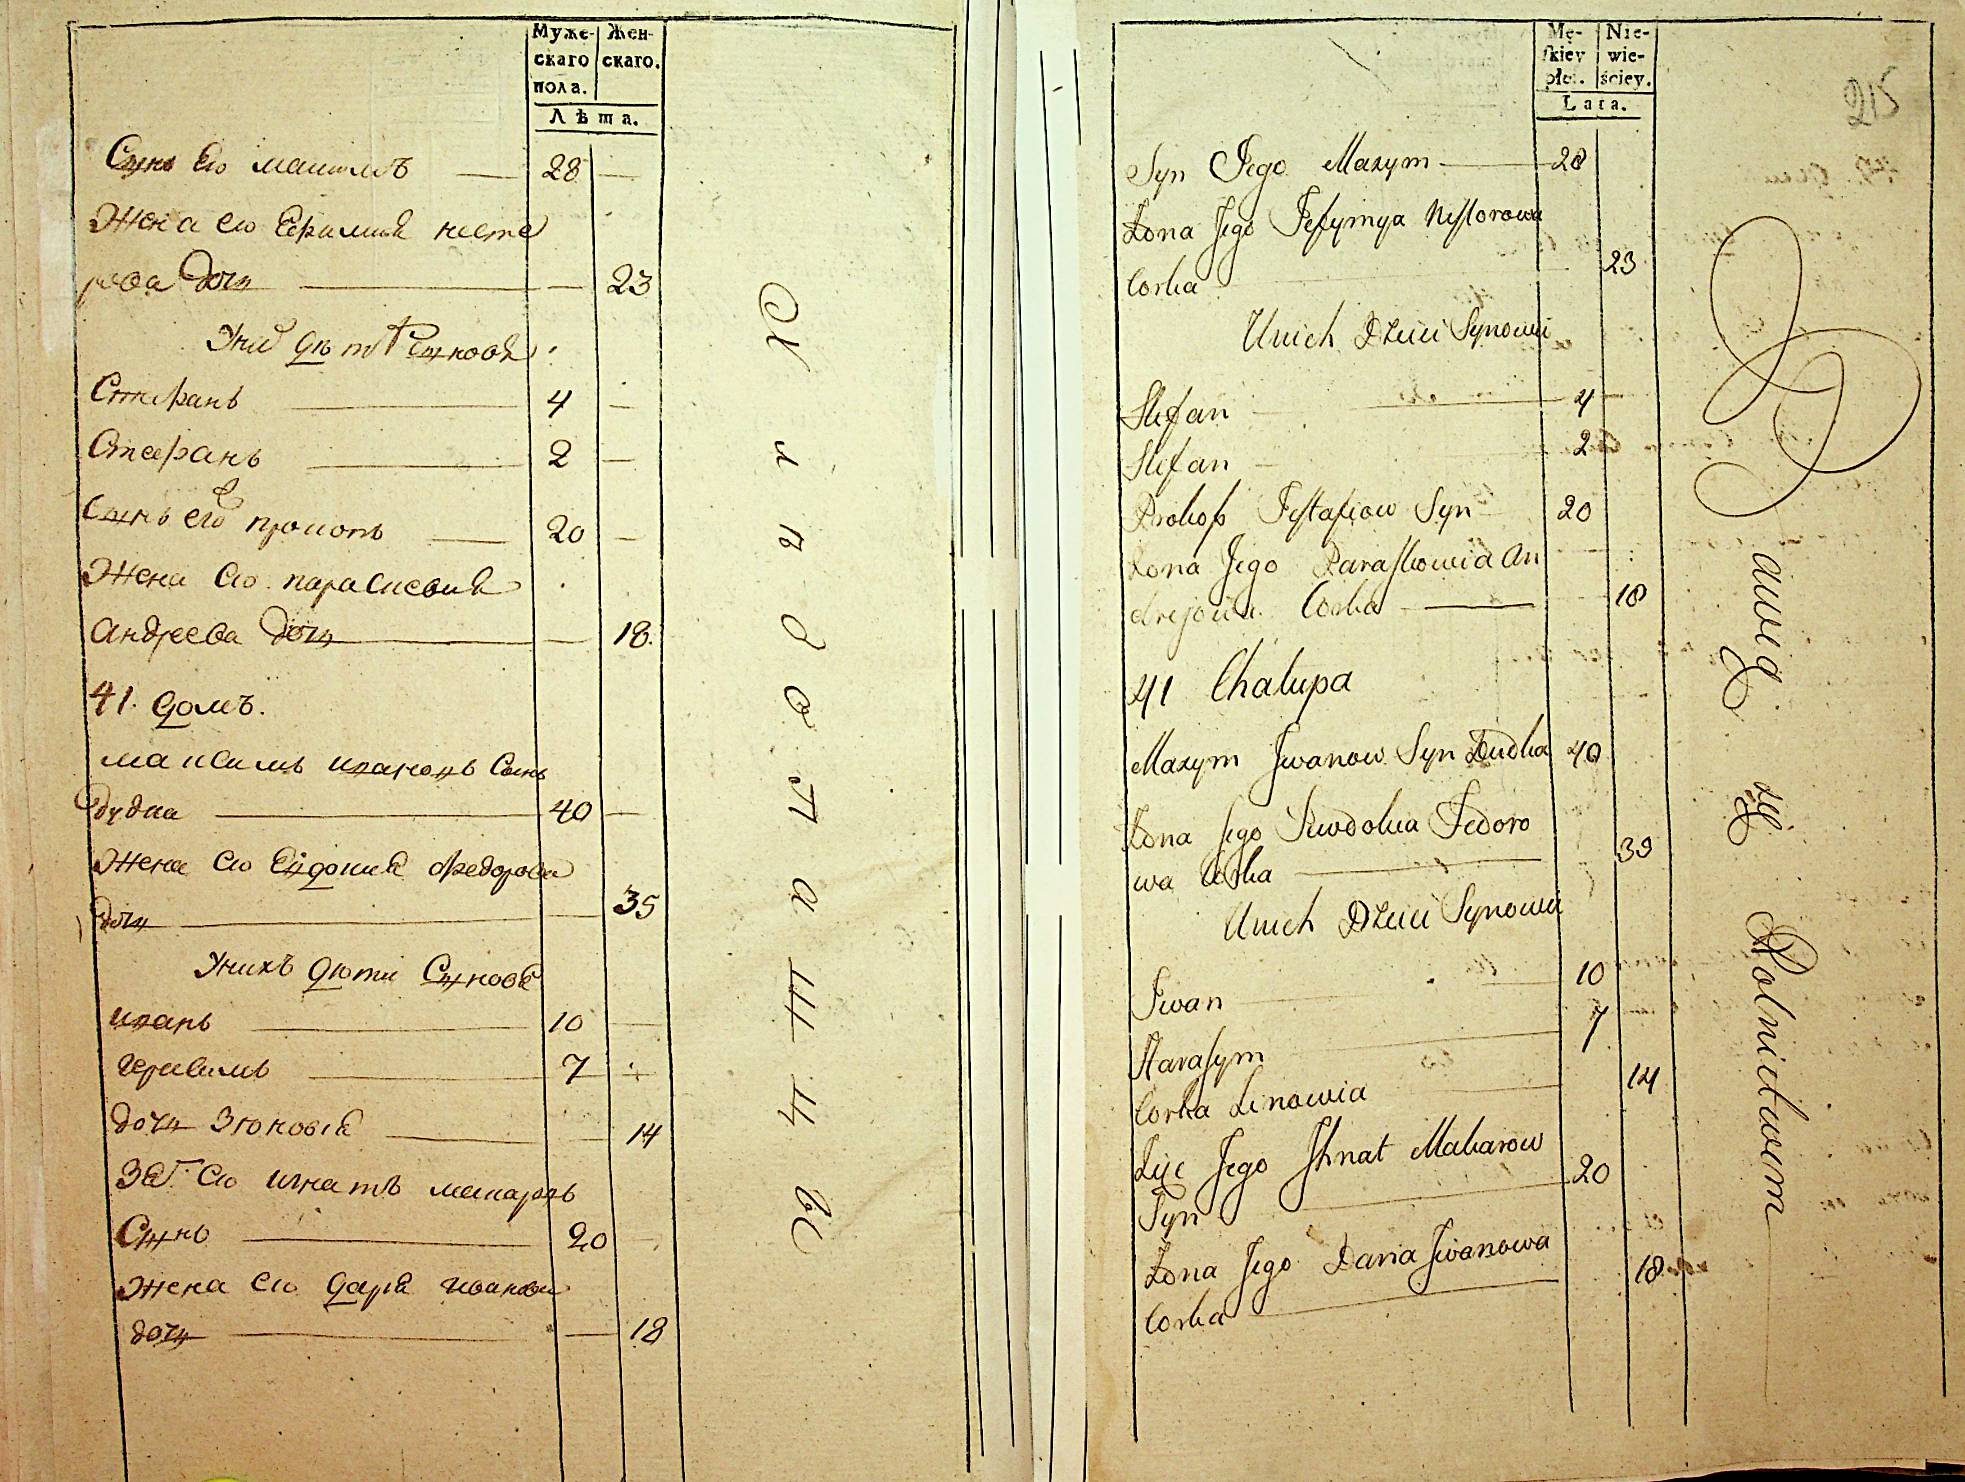 Муже-
скаго
пола.
Жен-
скаго.
Лѣта.
Сынъ Его Максимъ 28
Жена его Ефимия несте
рова дочь 23
У них дѣти Сыновя
Стефанъ 4
Стефанъ 2
Сынъ его прокопъ 20
Жена Его параскевия
Андреева дочь 18
41. домъ.
максимъ ивановъ Сынъ
дудка 40
Жена Его Евдокия Федорова
дочь 35
У нихъ дѣти Сыновя
иванъ 10
герасимъ 7
дочь Зѣновия 14
Зят Его игнатъ макаровъ
Сынъ 20
Жена Его даря иванова
дочь 18
Mę-
skiey
płci.
Nie-
wie-
ściey.
Lata.
215
Syn Jego Maxym 28
Żona Jego Jefymya Nestorowa
Corka 23
U nich Dzieci Synowie
Stefan 4
Stefan 2
Prokop Jestafiow Syn 20
Żona Jego Paraskowia An
drejowa Corka 18
41 Chałupa
Maxym Jwanow Syn Dudka 40
Żona Jego Jewdokia Fedoro
wa Corka 39
U nich Dzieci Synowie
Jwan 10
Harasym 7
Corka Zinowia 14
Zięc Jego Jhnat Makarow
Syn 20
Żona Jego Daria Jwanowa
Corka 18
Bawią się Rolnictwem